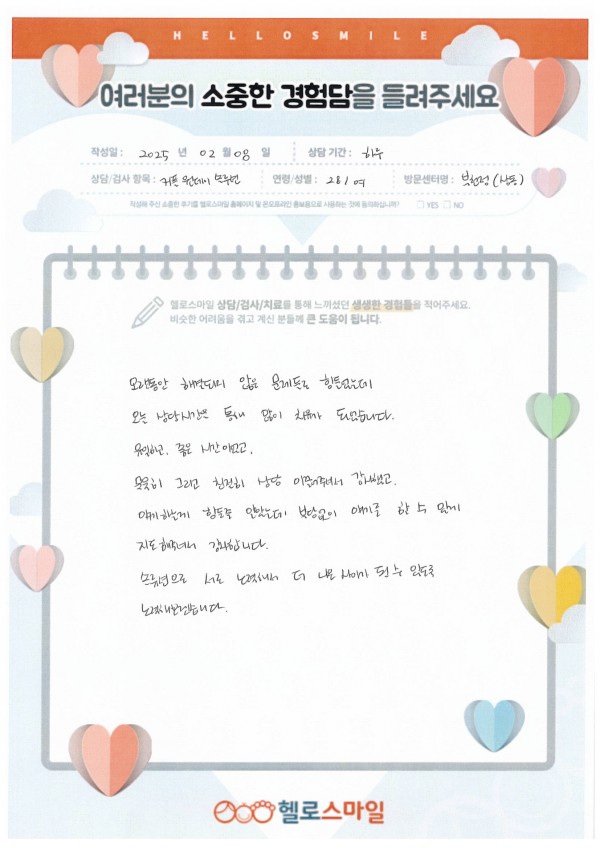 HELLOSMILE
여러분의 소중한 경험담을 들려주세요
작성일 : 2025 년 02 월 08 일 상담 기간 : 하루
상담/검사 항목 : 커플 원데이 연령/성별 : 28 / 여 방문센터명 : (상동)
작성해 주신 소중한 후기를 헬로스마일 홈페이지 및 온오프라인 홍보용으로 사용하는 것에 동의하십니까? □ YES □ NO
헬로스마일 상담/검사/치료를 통해 느끼셨던 생생한 경험들을 적어주세요.
비슷한 어려움을 겪고 계신 분들께 큰 도움이 됩니다.
오랫동안 해결되지 않은 문제들로 힘들었는데
오늘 상담시간을 통해 많이 치유가 되었습니다.
유익하고, 좋은 시간이었고,
그리고 친절히 상담 이끌어주셔서 감사했고,
얘기하는게 힘들줄 알았는데 부담없이 얘기를 할 수 있게
지도해주셔서 감사합니다.
서로 노력해서 더 나은 사이가 될 수 있도록
노력해보겠습니다.
헬로스마일